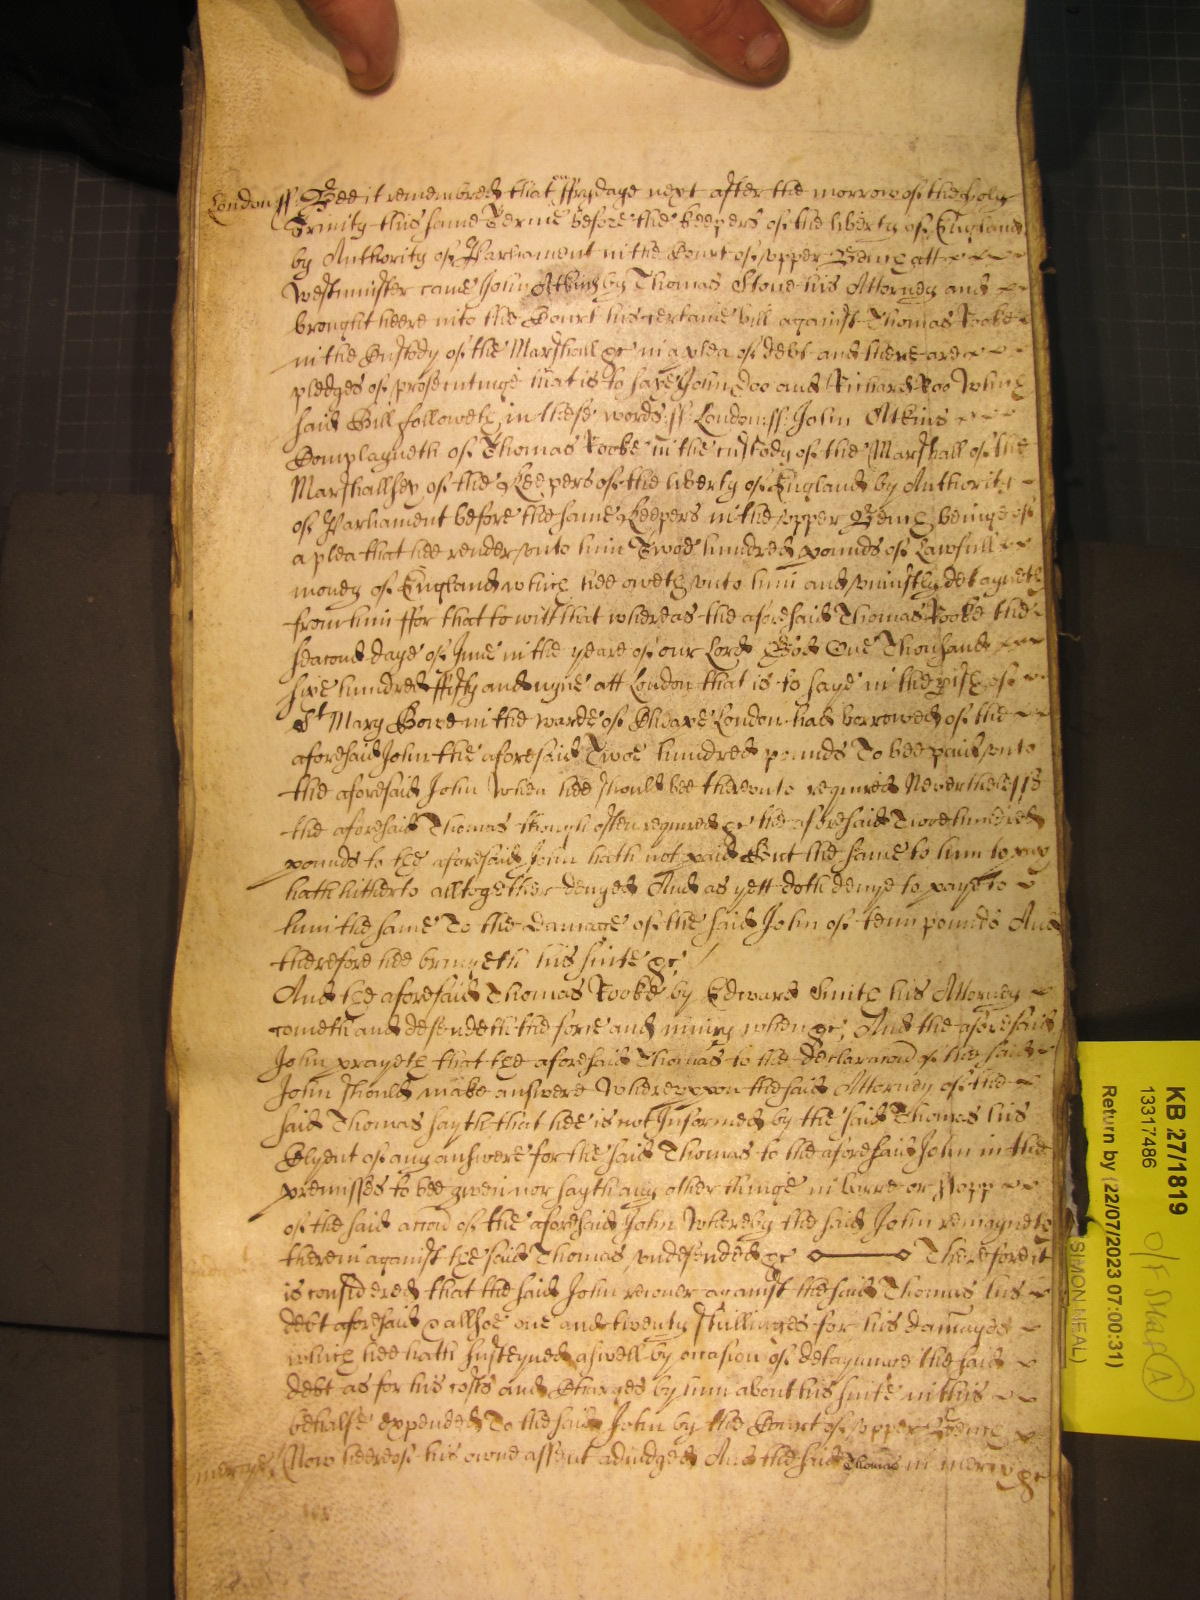 London ss Bee it remembred that on ffrydaye next after the morrow of the holy
Trinity this same Terme before the keepers of the liberty of England
by Authority of Parliament in the Court of upper Bench att
Westminster came John Atkins by Thomas Stone his Attorney and
brought heere into the Court his certaine bill against Thomas Rooke
in the Custody of the Marshall &c in a plea of debt and there are
pledges of prosecutinge that is to saye John Doo and Richard Roo Which
said Bill followeth in these words ss London ss John Atkins
Complayneth of Thomas Rooke in the custody of the Marshall of the
Marshallsey of the Keepers of the liberty of England by Authority
of Parliament before the same Keepers in the upper Bench beinge of
a plea that hee render unto him Twoe hundred pounds of Lawfull
money of England which hee oweth unto him and uniustly detayneth
from him ffor that to witt that whereas the aforesaid Thomas Rooke the
seacond daye of June in the yeare of our Lord God One Thousand
six hundred ffifty and nyne att London that is to saye in the pish of
St Mary Bowe in the warde of Cheape London had borrowed of the
aforesaid John the aforesaid Twoe hundred pounds To bee paid unto
the aforesaid John When hee should bee thereunto required Neverthelesse
the aforesaid Thomas though often required &c the aforesaid Twoe hundred
pounds to the aforesaid John hath not paid but the same to him to pay
hath hitherto alltogether denyed And as yett doth denye to paye to
him the same To the Damage of the said John of tenn pounds And
therefore hee bringeth his suite &c
And the aforesaid Thomas Rooke by Edward Smith his Attorney
cometh and defendeth the force and iniury when &c And the aforesaid
John prayeth that the aforesaid Thomas to the declaracon of the said
John should make answere Whereuppon the said Attorney of the
said Thomas sayth that hee is not Informed by the said Thomas his
Clyent of any answere for the said Thomas to the aforesaid John in the
premisses to bee given nor sayth any other thinge in barre or stopp
of the said accon of the aforesaid John Whereby the said John remayneth
therein against the said Thomas undefended &c Therefore it
is considered that the said John recover against the said Thomas his
debt aforesaid & allsoe one and twenty shillinges for his damages
which hee hath susteyned aswell by occasion of detayninge the said
debt as for his costs and Charges by him about his suite in this
behalfe expended To the said John by the Court of upper Bench
mercye Now heere of his owne assent adiudged And the said Thomas in mercy &c
KB 27/1819
13317486
Return by (22/07/2023 07:00:31)
SIMON NEAL)
A